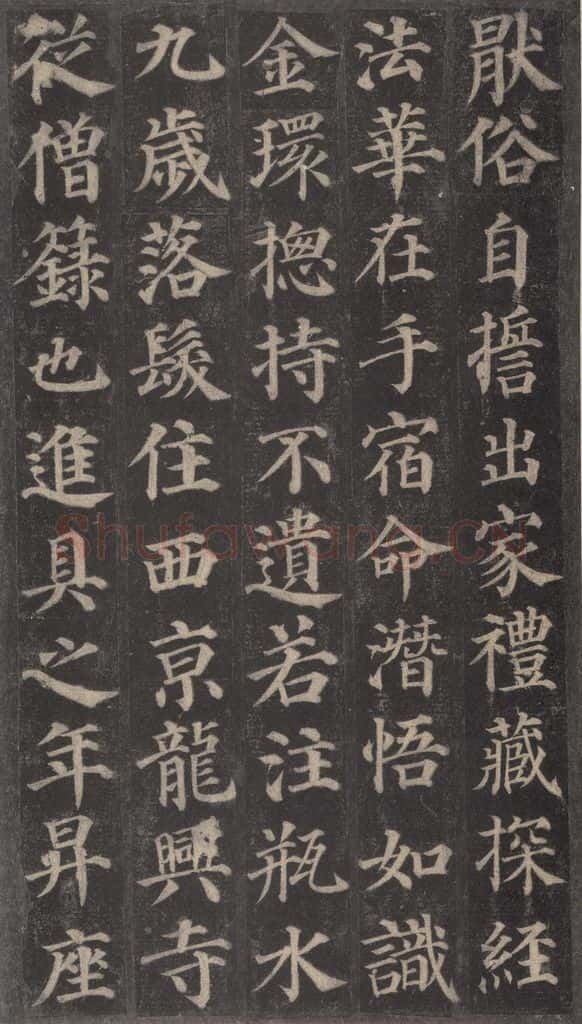 猒俗自誓出家禮藏探經
法華在手宿命潛悟如識
金環揔持不遺若注瓶水
九歲落髮住西京龍興寺
從僧籙也進具之年昇座
Shufawang.CN